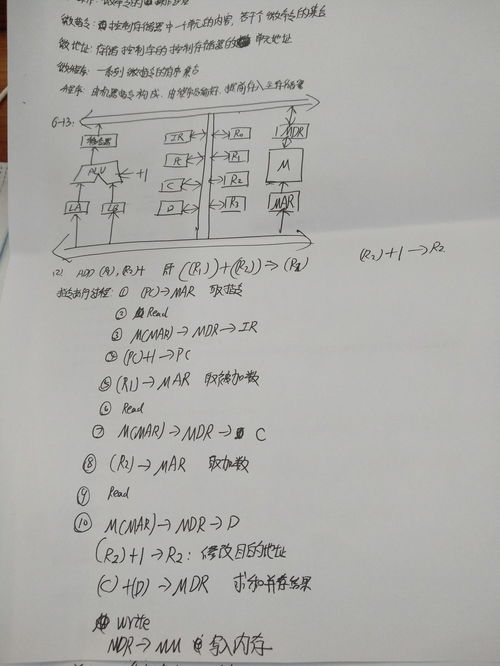 微指令: 控制存储器中一个单元的内容, 若干个微命令的集合
微地址: 存储控制字的控制存储器的单元地址
微程序: 一系列微指令的有序集合
程序: 由机器指令构成, 由程序员编制, 提前存入主存储器
6-13.
移位器 IR R0 MDR
ALU +1 PC R1 M
C R2
LA LB D R3 MAR
(2) ADD (R1), (R2)+ 即 ((R1))+((R2))→(R2) (R2)+1→R2
指令执行过程: ① (PC)→MAR 取指令
② Read
③ M(MAR)→MDR→IR
④ (PC)+1→PC
⑤ (R1)→MAR 取被加数
⑥ Read
⑦ M(MAR)→MDR→C
⑧ (R2)→MAR 取加数
⑨ Read
⑩ M(MAR)→MDR→D
(R2)+1→R2: 修改目的地址
(C)+(D)→MDR 求和并存结果
write
MDR→MM 写入内存